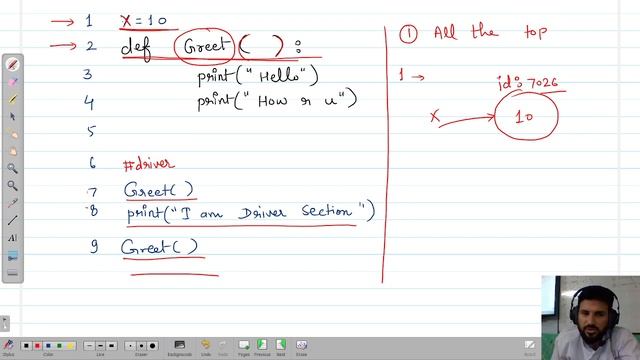 1 X = 10
2 def Greet( ) :
3 print("Hello")
4 print("How r u")
5
6 #driver
7 Greet( )
8 print("I am Driver Section")
9 Greet( )
① All the top
1 →
id: 7026
X 10
Stylus
Color
Line
Eraser
Backgrounds
Undo
Redo
Pages
Previous
Next
Erase